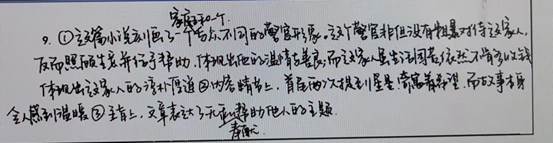 家庭和一个
9. ①这篇小说刻画了一个与众不同的警官形象。这个警官非但没有粗暴对待这家人,
反而照顾生意并给予帮助,体现出他的温情善良,而这家人虽生活困苦依然不肯多收钱
体现出这家人的淳朴厚道②内容情节上,首尾两次提到星星,寓意着希望,而故事本身
令人感到温暖③主旨上,文章表达了无私帮助他人的主题.
奉献